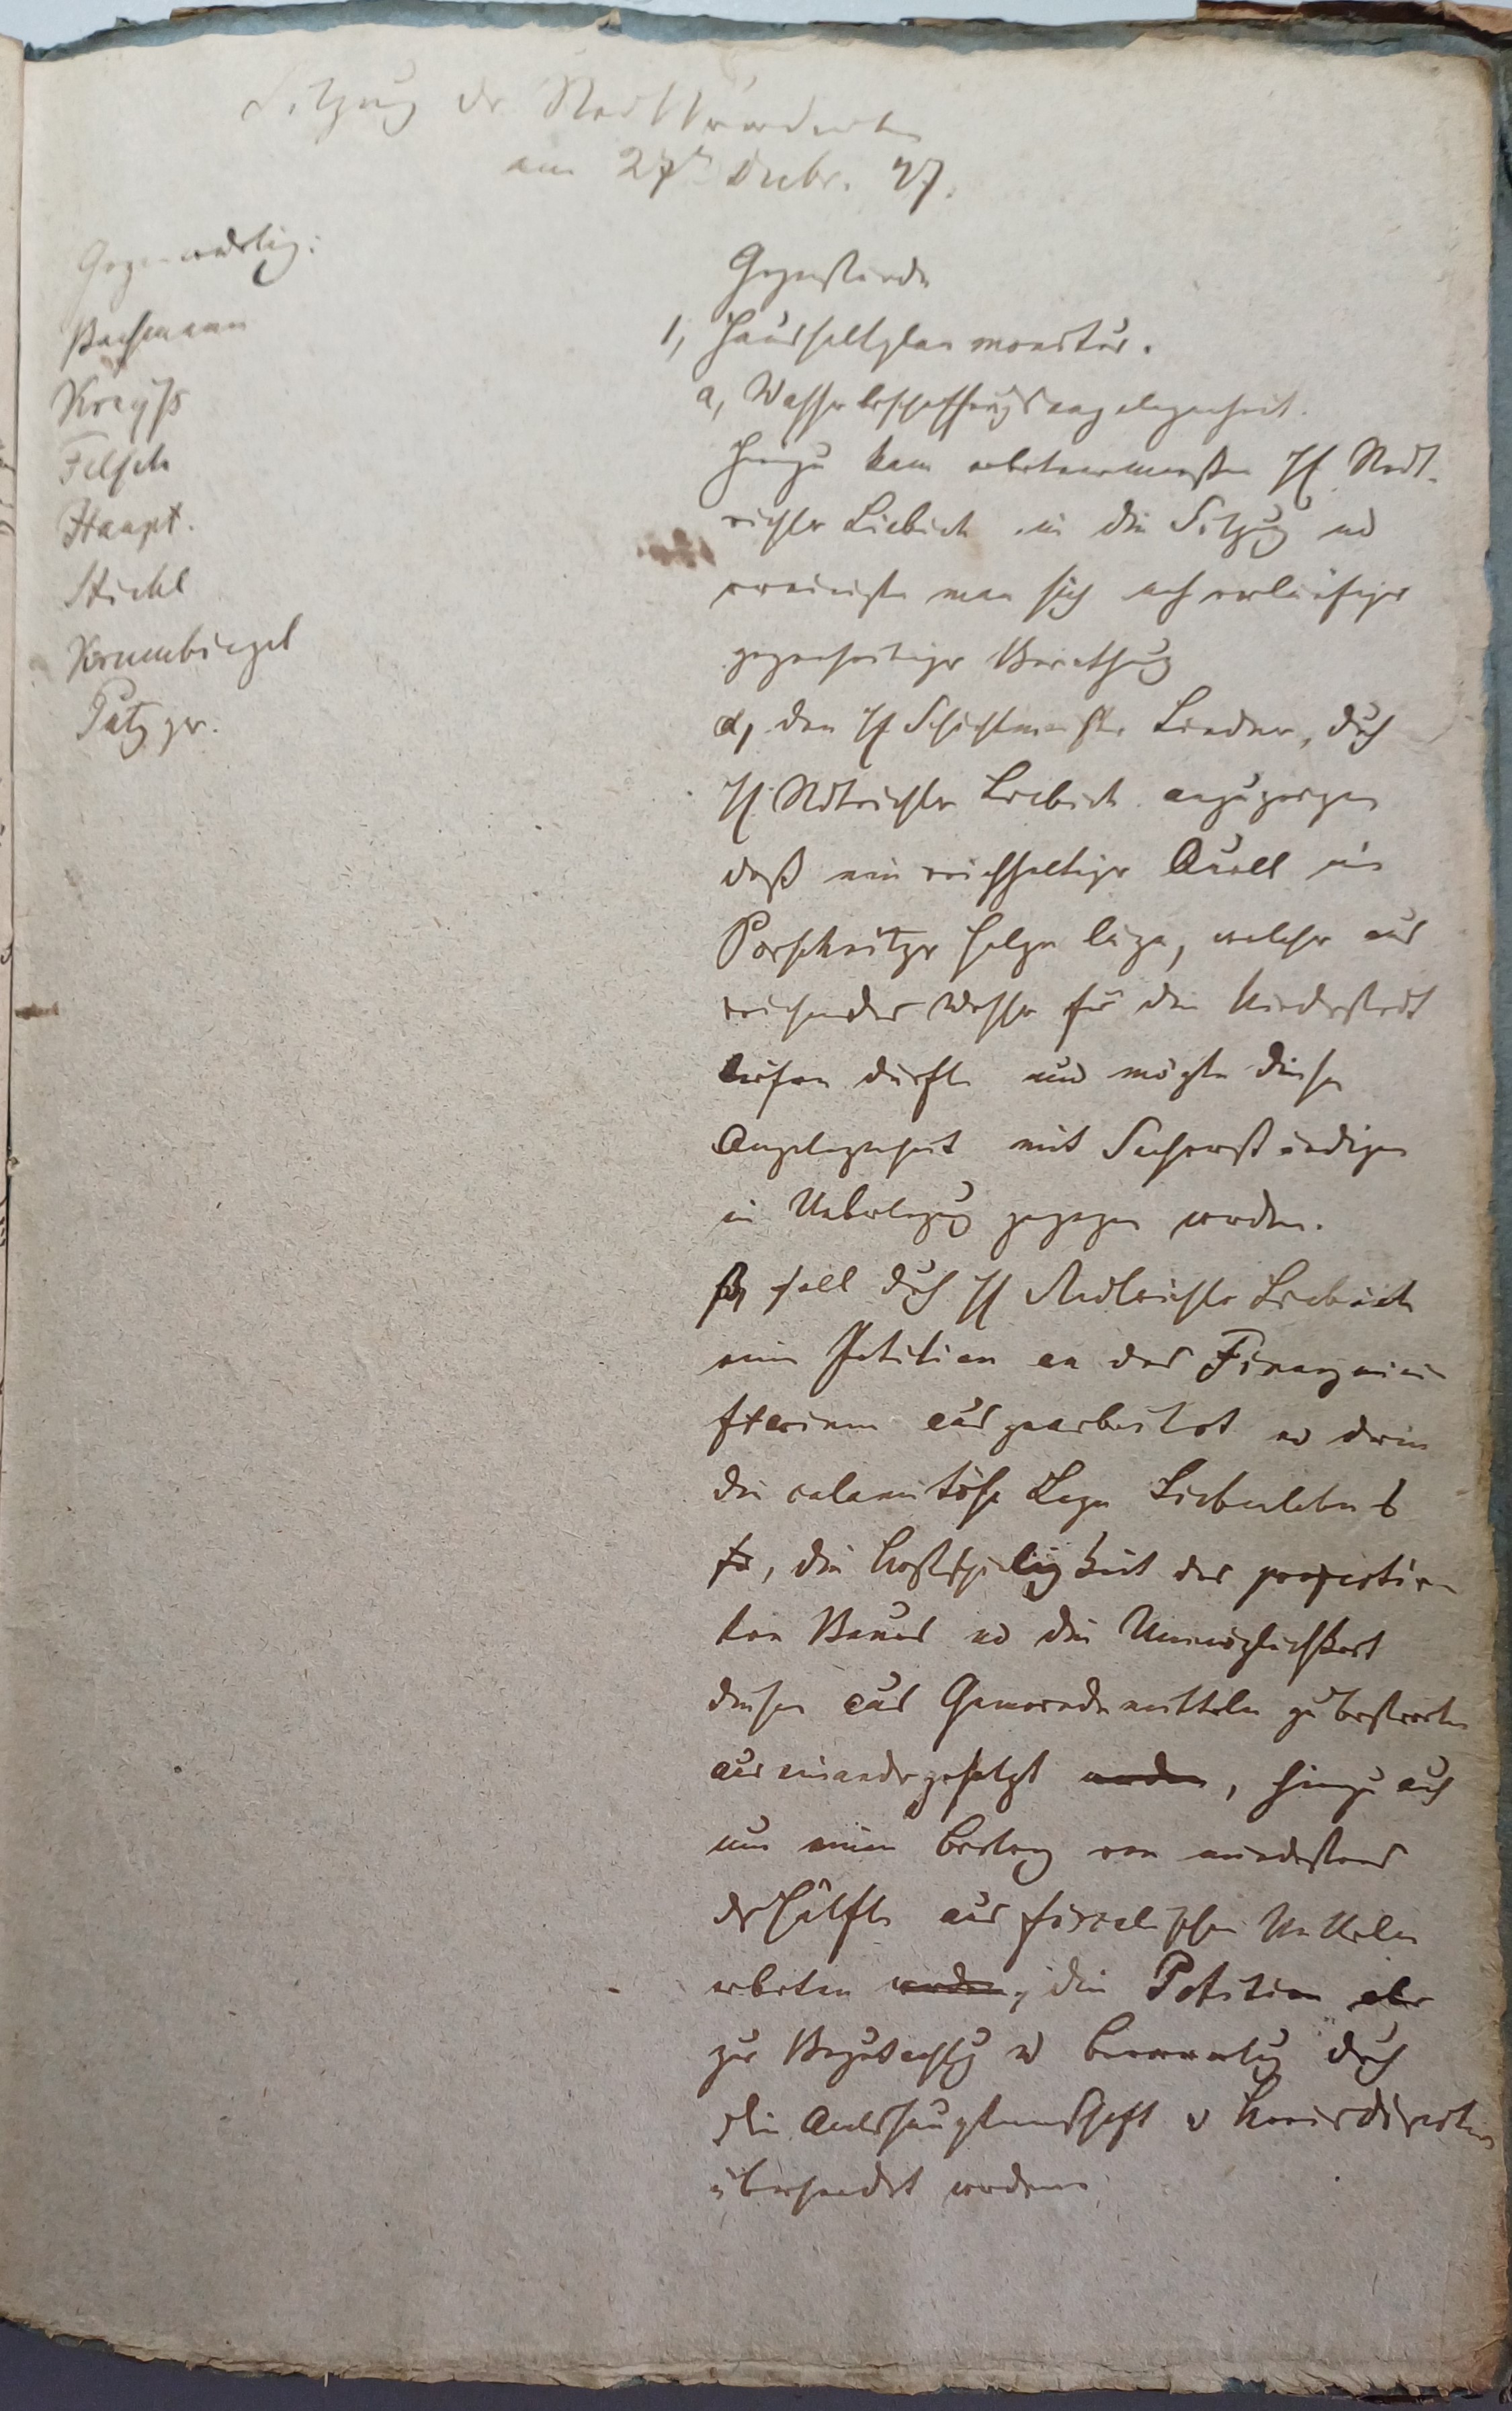 Sitzung der Stadtverordneten
am 27n Decbr. 47.
Gegenwärtig:
Bachmann
Kreyß
Felsch
Haupt.
Stickl
Krumbiegel
Patzger.
Gegenstände
1, Haushaltplan monitur.
a, Wasserbeschaffungsangelegenheit.
Hinzu kam erbetenermaßen H. Stadt-
richter Liebich in die Sitzung und
vereinigte man sich nach vorläufiger
gegenseitiger Berathung
α, den H Schichtmeister Lindner, durch
H. Stdtrichter Liebich anzuzeigen
daß ein reichhaltiger Quell im
Porschnitzer Holze liege, welcher aus
reichendes Wasser für die Niederstadt
liefern dürfte und möchte diese
Angelegenheit mit Sachverständigen
in Ueberlegung gezogen werden.
β, soll durch H Stadtrichter Liebich
eine Petition an das Finanzmini
sterium ausgearbeitet und darin
die calamitöse Lage Siebenlehns
, die Kostspieligkeit des projectir
ten Baues und die Unmöglichkeit
diesen aus Gemeindemitteln zu bestreiten
auseinandergesetzt werden, hinzu auch
um einen Beitrag von mindestens
der Hälfte aus fiscalischen Mitteln
erbeten werden, die Petition aber
zur Begutachtung und Bevorwortung durch
die Amtshauptmannschaft u Kreisdirection
übersendet werden.